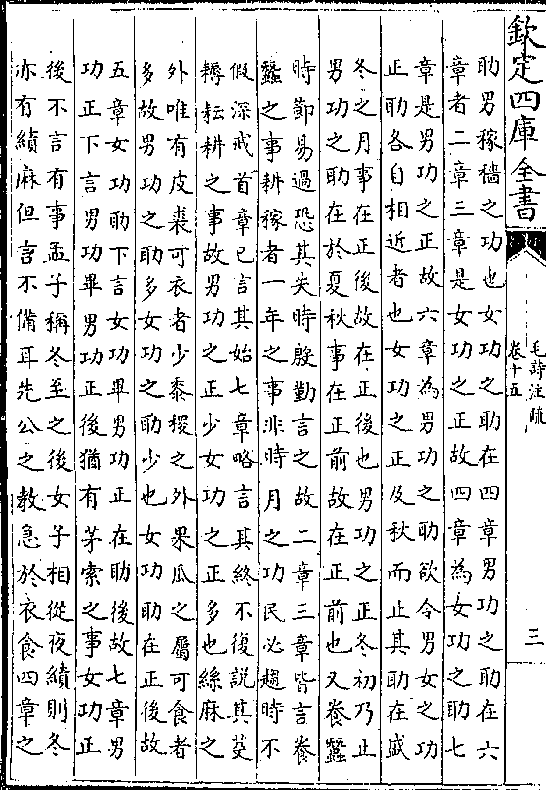 欽定四庫全書
毛詩注疏
卷十五
三
助男稼穡之功也女功之助在四章男功之助在六
章者二章三章是女功之正故四章為女功之助七
章是男功之正故六章為男功之助欲令男女之功
正助各自相近者也女功之正及秋而止其助在盛
冬之月事在正後故在正後也男功之正冬初乃止
男功之助在於夏秋事在正前故在正前也又養蠶
時節易過恐其失時殷勤言之故二章三章皆言養
蠶之事耕稼者一年之事非時月之功民必趨時不
假深戒首章已言其始七章略言其終不復説其芟
耨耘耕之事故男功之正少女功之正多也絲麻之
外唯有皮裘可衣者少黍稷之外果瓜之屬可食者
多故男功之助多女功之助少也女功助在正後故
五章女功助下言女功畢男功正在助後故七章男
功正下言男功畢男功正後猶有茅索之事女功正
後不言有事孟子稱冬至之後女子相從夜績則冬
亦有績麻但言不備耳先公之教急於衣食四章之